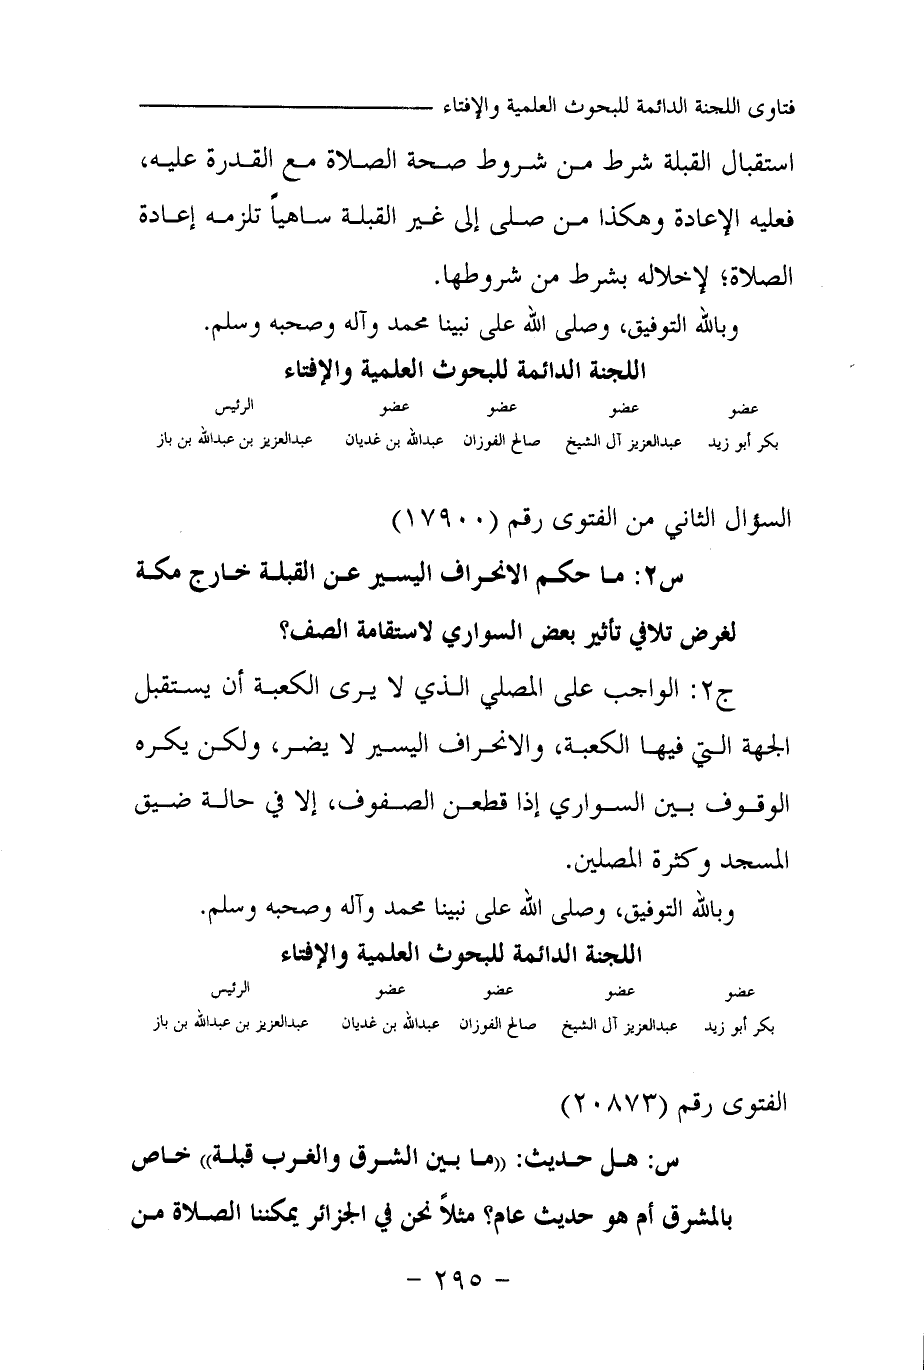 فتاوى اللجنة الدائمة للبحوث العلمية والإفتاء
استقبال القبلة شرط من شروط صحة الصلاة مع القدرة عليه،
فعليه الإعادة وهكذا من صلى إلى غير القبلة ساهياً تلزمه إعادة
الصلاة؛ لإخلاله بشرط من شروطها.
وبالله التوفيق، وصلى الله على نبينا محمد وآله وصحبه وسلم.
اللجنة الدائمة للبحوث العلمية والإفتاء
عضو عضو عضو عضو الرئيس
بكر أبو زيد عبدالعزيز آل الشيخ صالح الفوزان عبدالله بن غديان عبدالعزيز بن عبدالله بن باز
السؤال الثاني من الفتوى رقم (١٧٩٠٠)
س٢: ما حكم الانحراف اليسير عن القبلة خارج مكة
لغرض تلافي تأثير بعض السواري لاستقامة الصف؟
ج٢: الواجب على المصلي الذي لا يرى الكعبة أن يستقبل
الجهة التي فيها الكعبة، والانحراف اليسير لا يضر، ولكن يكره
الوقوف بين السواري إذا قطعن الصفوف، إلا في حالة ضيق
المسجد وكثرة المصلين.
وبالله التوفيق، وصلى الله على نبينا محمد وآله وصحبه وسلم.
اللجنة الدائمة للبحوث العلمية والإفتاء
عضو عضو عضو عضو الرئيس
بكر أبو زيد عبدالعزيز آل الشيخ صالح الفوزان عبدالله بن غديان عبدالعزيز بن عبدالله بن باز
الفتوى رقم (٢٠٨٧٣)
س: هل حديث: ((ما بين الشرق والغرب قبلة)) خاص
بالمشرق أم هو حديث عام؟ مثلاً نحن في الجزائر يمكننا الصلاة من
- ٢٩٥ -